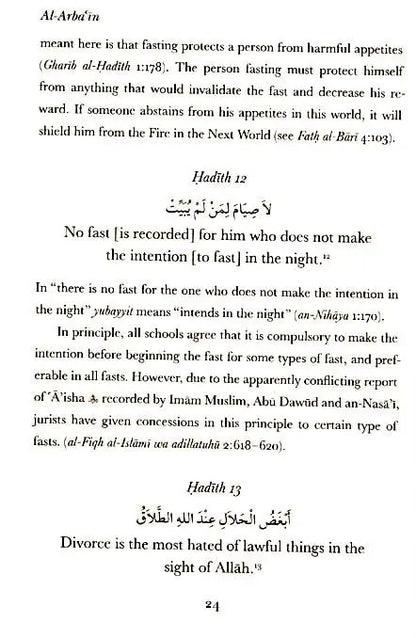 Al-Arbaʿīn
meant here is that fasting protects a person from harmful appetites
(Gharīb al-Ḥadīth 1:178). The person fasting must protect himself
from anything that would invalidate the fast and decrease his re-
ward. If someone abstains from his appetites in this world, it will
shield him from the Fire in the Next World (see Fatḥ al-Bārī 4:103).
Ḥadīth 12
لاَ صِيَامَ لِمَنْ لَمْ يُبَيِّتْ
No fast [is recorded] for him who does not make
the intention [to fast] in the night.¹²
In “there is no fast for the one who does not make the intention in
the night” yubayyit means “intends in the night” (an-Nihāya 1:170).
In principle, all schools agree that it is compulsory to make the
intention before beginning the fast for some types of fast, and pref-
erable in all fasts. However, due to the apparently conflicting report
of ʿĀʾisha recorded by Imām Muslim, Abū Dawūd and an-Nasāʾī,
jurists have given concessions in this principle to certain type of
fasts. (al-Fiqh al-Islāmī wa adillatuhū 2:618–620).
Ḥadīth 13
أَبْغَضُ الْحَلَالِ عِنْدَ اللهِ الطَّلَاقُ
Divorce is the most hated of lawful things in the
sight of Allāh.¹³
24